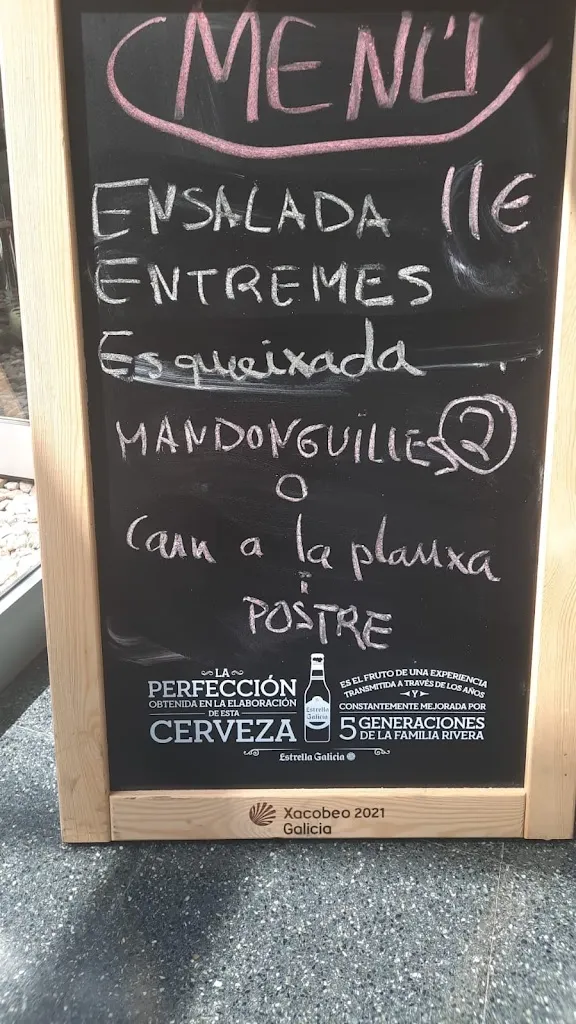 MENÚ
ENSALADA 11€
ENTREMES
Esqueixada
MANDONGUILLES 2
O
Carn a la planxa
i
POSTRE
LA
PERFECCIÓN
OBTENIDA EN LA ELABORACIÓN
DE ESTA
CERVEZA
Estrella Galicia
ES EL FRUTO DE UNA EXPERIENCIA
TRANSMITIDA A TRAVÉS DE LOS AÑOS
Y
CONSTANTEMENTE MEJORADA POR
5 GENERACIONES
DE LA FAMILIA RIVERA
Estrella Galicia
Xacobeo 2021
Galicia